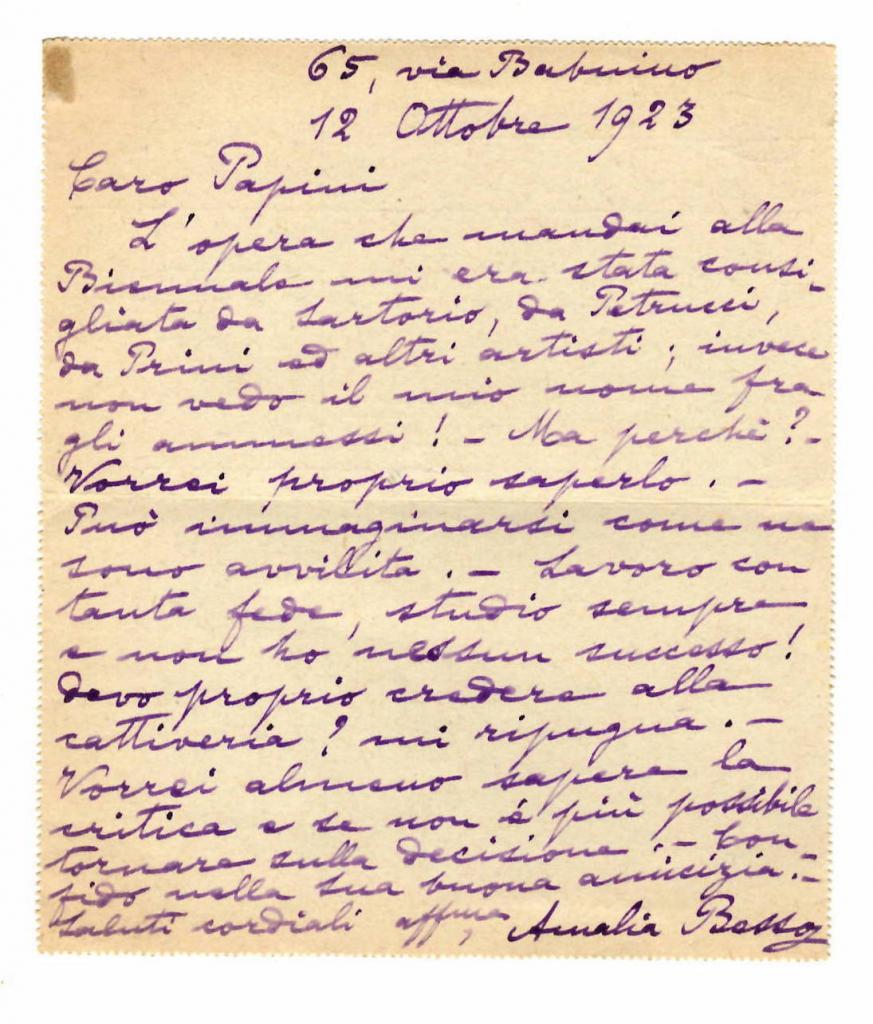 65, via Babuino
12 Ottobre 1923
Caro Papini
L'opera che mandai alla
Biennale mi era stata consi-
gliata da Sartorio, da Petrucci,
da Prini ed altri artisti; invece
non vedo il mio nome fra
gli ammessi! - Ma perchè? -
Vorrei proprio saperlo. -
Può immaginarsi come ne
sono avvilita. - Lavoro con
tanta fede, studio sempre
e non ho nessun successo!
Devo proprio credere alla
cattiveria? mi ripugna. -
Vorrei almeno sapere la
critica e se non è più possibile
tornare sulla decisione. - Con
fido nella sua buona amicizia. -
Saluti cordiali affma, Amalia Besso